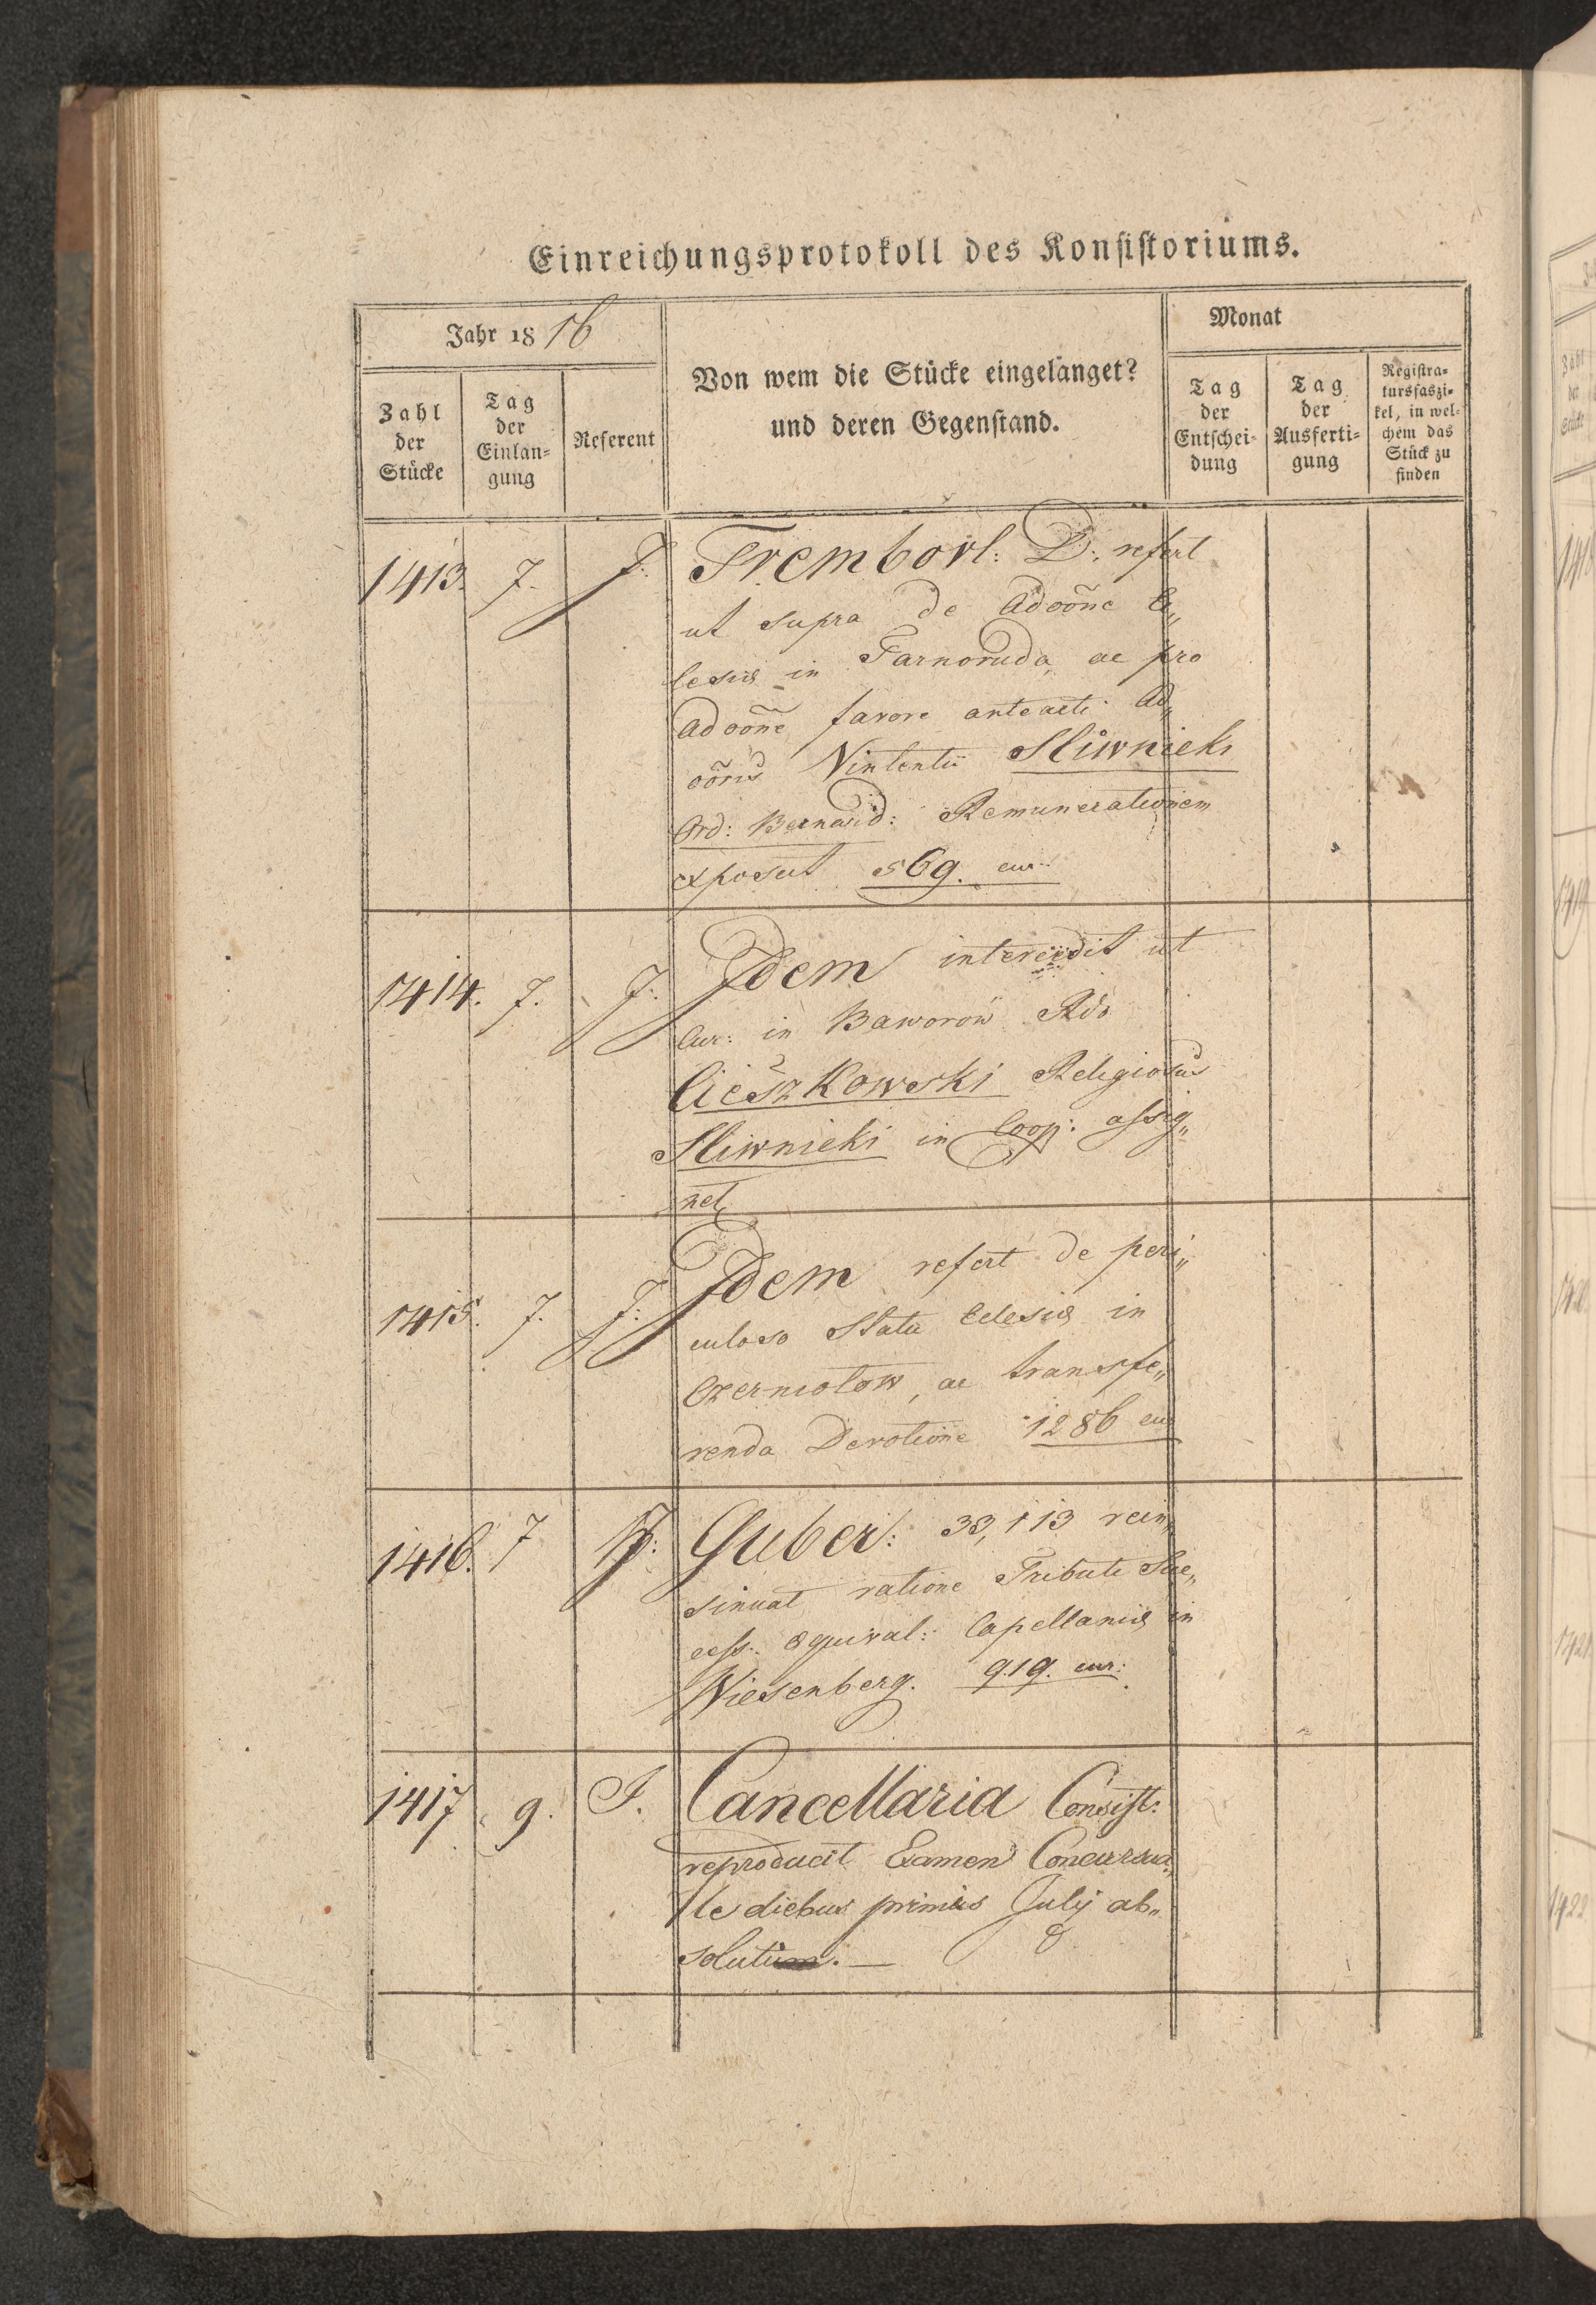 Einreichungsprotokoll des Konsistoriums.
Jahr 1816
Zahl der Stücke
Tag der Einlangung
Referent
Von wem die Stücke eingelanget?
und deren Gegenstand.
Monat
Tag der Entscheidung
Tag der Ausfertigung
Registratursfaszikel, in welchem das Stück zu finden
1413. 7. J: Tremborl: D: refert
ut supra de Adōōne Ec„
lesiæ in Tarnoruda, ac pro
adōōne favore anteacti Ad„
ōōris Vintentii Sliwnicki
Ord: Bernard: Remunerationem
exposcit 569. cur:
1414. 7. J: Idem intercedit ut
Cur: in Baworow Rdo
Cieszkowski Religiosus
Sliwnicki in Coop: assig„
net
1415. 7. J: Idem refert de peri„
culoso Statu Eclesiæ in
Czernolow, ac transfe„
renda Devotione 1286 cur
1416. 7 J: Guber: 33,113 rein„
sinuat ratione Tributi Suc„
cess: æquival: Capellaniæ in
Wiesenberg. 919. cur:
1417 9. J. Cancellaria Consist:
reproducit Examen Concursua„
le diebus primis Julij ab„
solutum.—